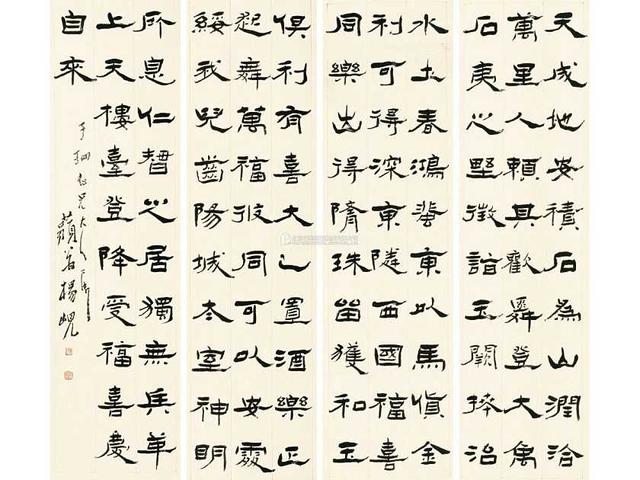 天成地安積石為山潤洽
萬里人賴其歡舜登大禹
石夷之野徵詣玉闕拜治
水土春鴻蜚東以馬貨金
利可得深東隣西國福喜
同樂出得隋珠留獲和玉
俱利有喜大乙置酒樂正
起舞萬福攸同可以安處
綏我兒齒陽城太室神明
所息仁智之居獨無兵革
上天樓臺登降受福喜慶
自來
仁兄大人
藐翁楊峴